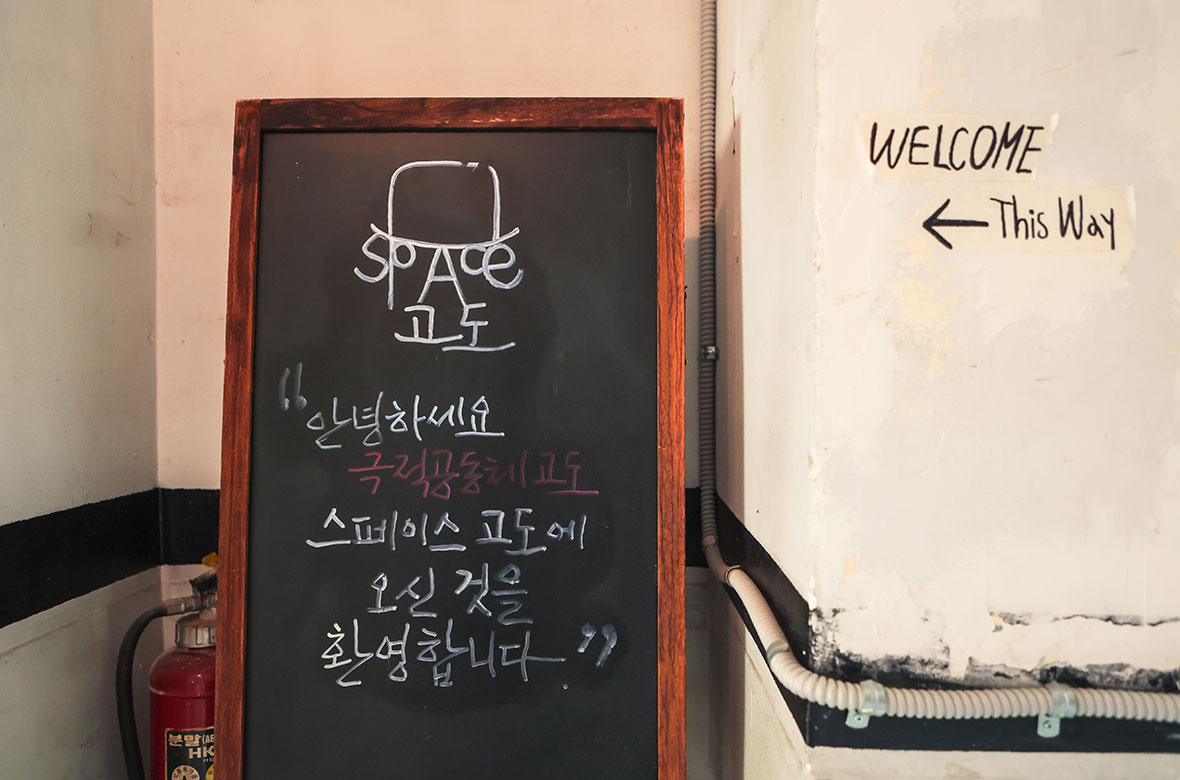 space
고도
“안녕하세요
극적공동체고도
스페이스 고도에
오신 것을
환영합니다.”
WELCOME
← This Way
분말(AB
HK